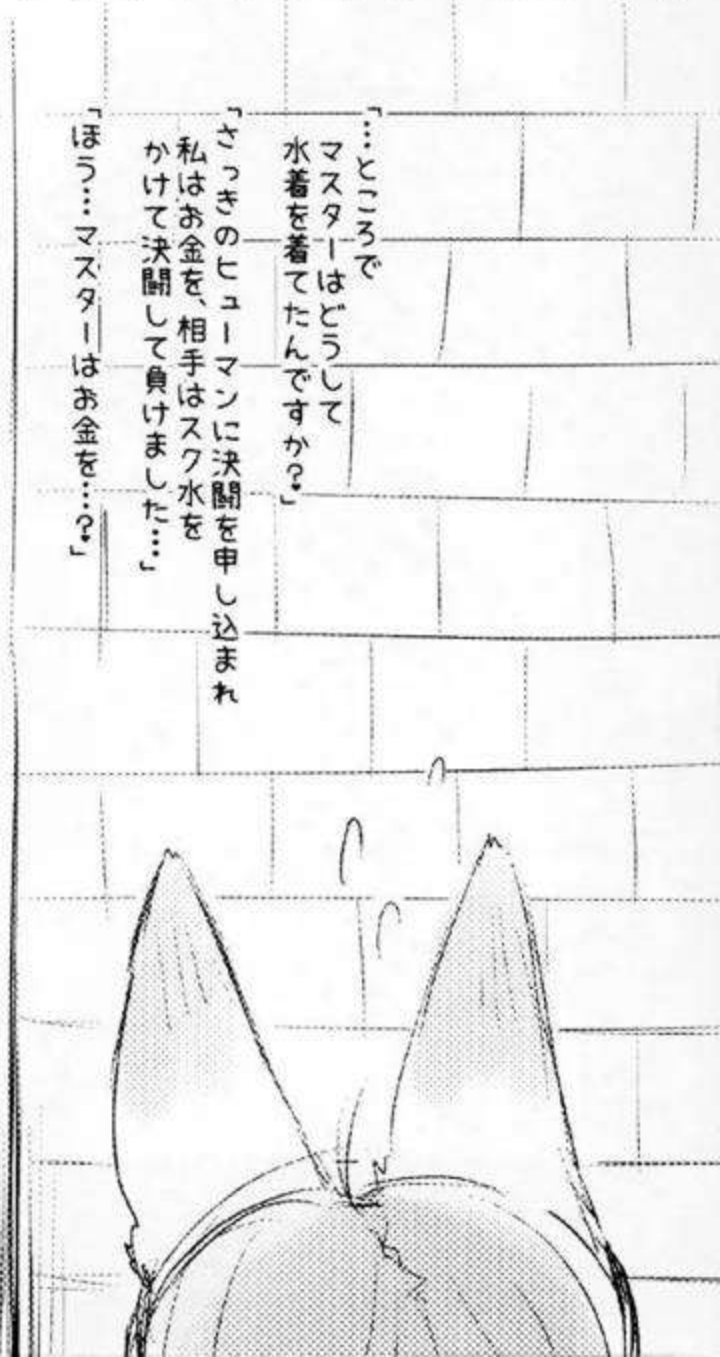 「…ところで
マスターはどうして
水着を着てたんですか?」
「さっきのヒューマンに決闘を申し込まれ
私はお金を、相手はスク水を
かけて決闘して負けました…」
「ほう…マスターはお金を…?」